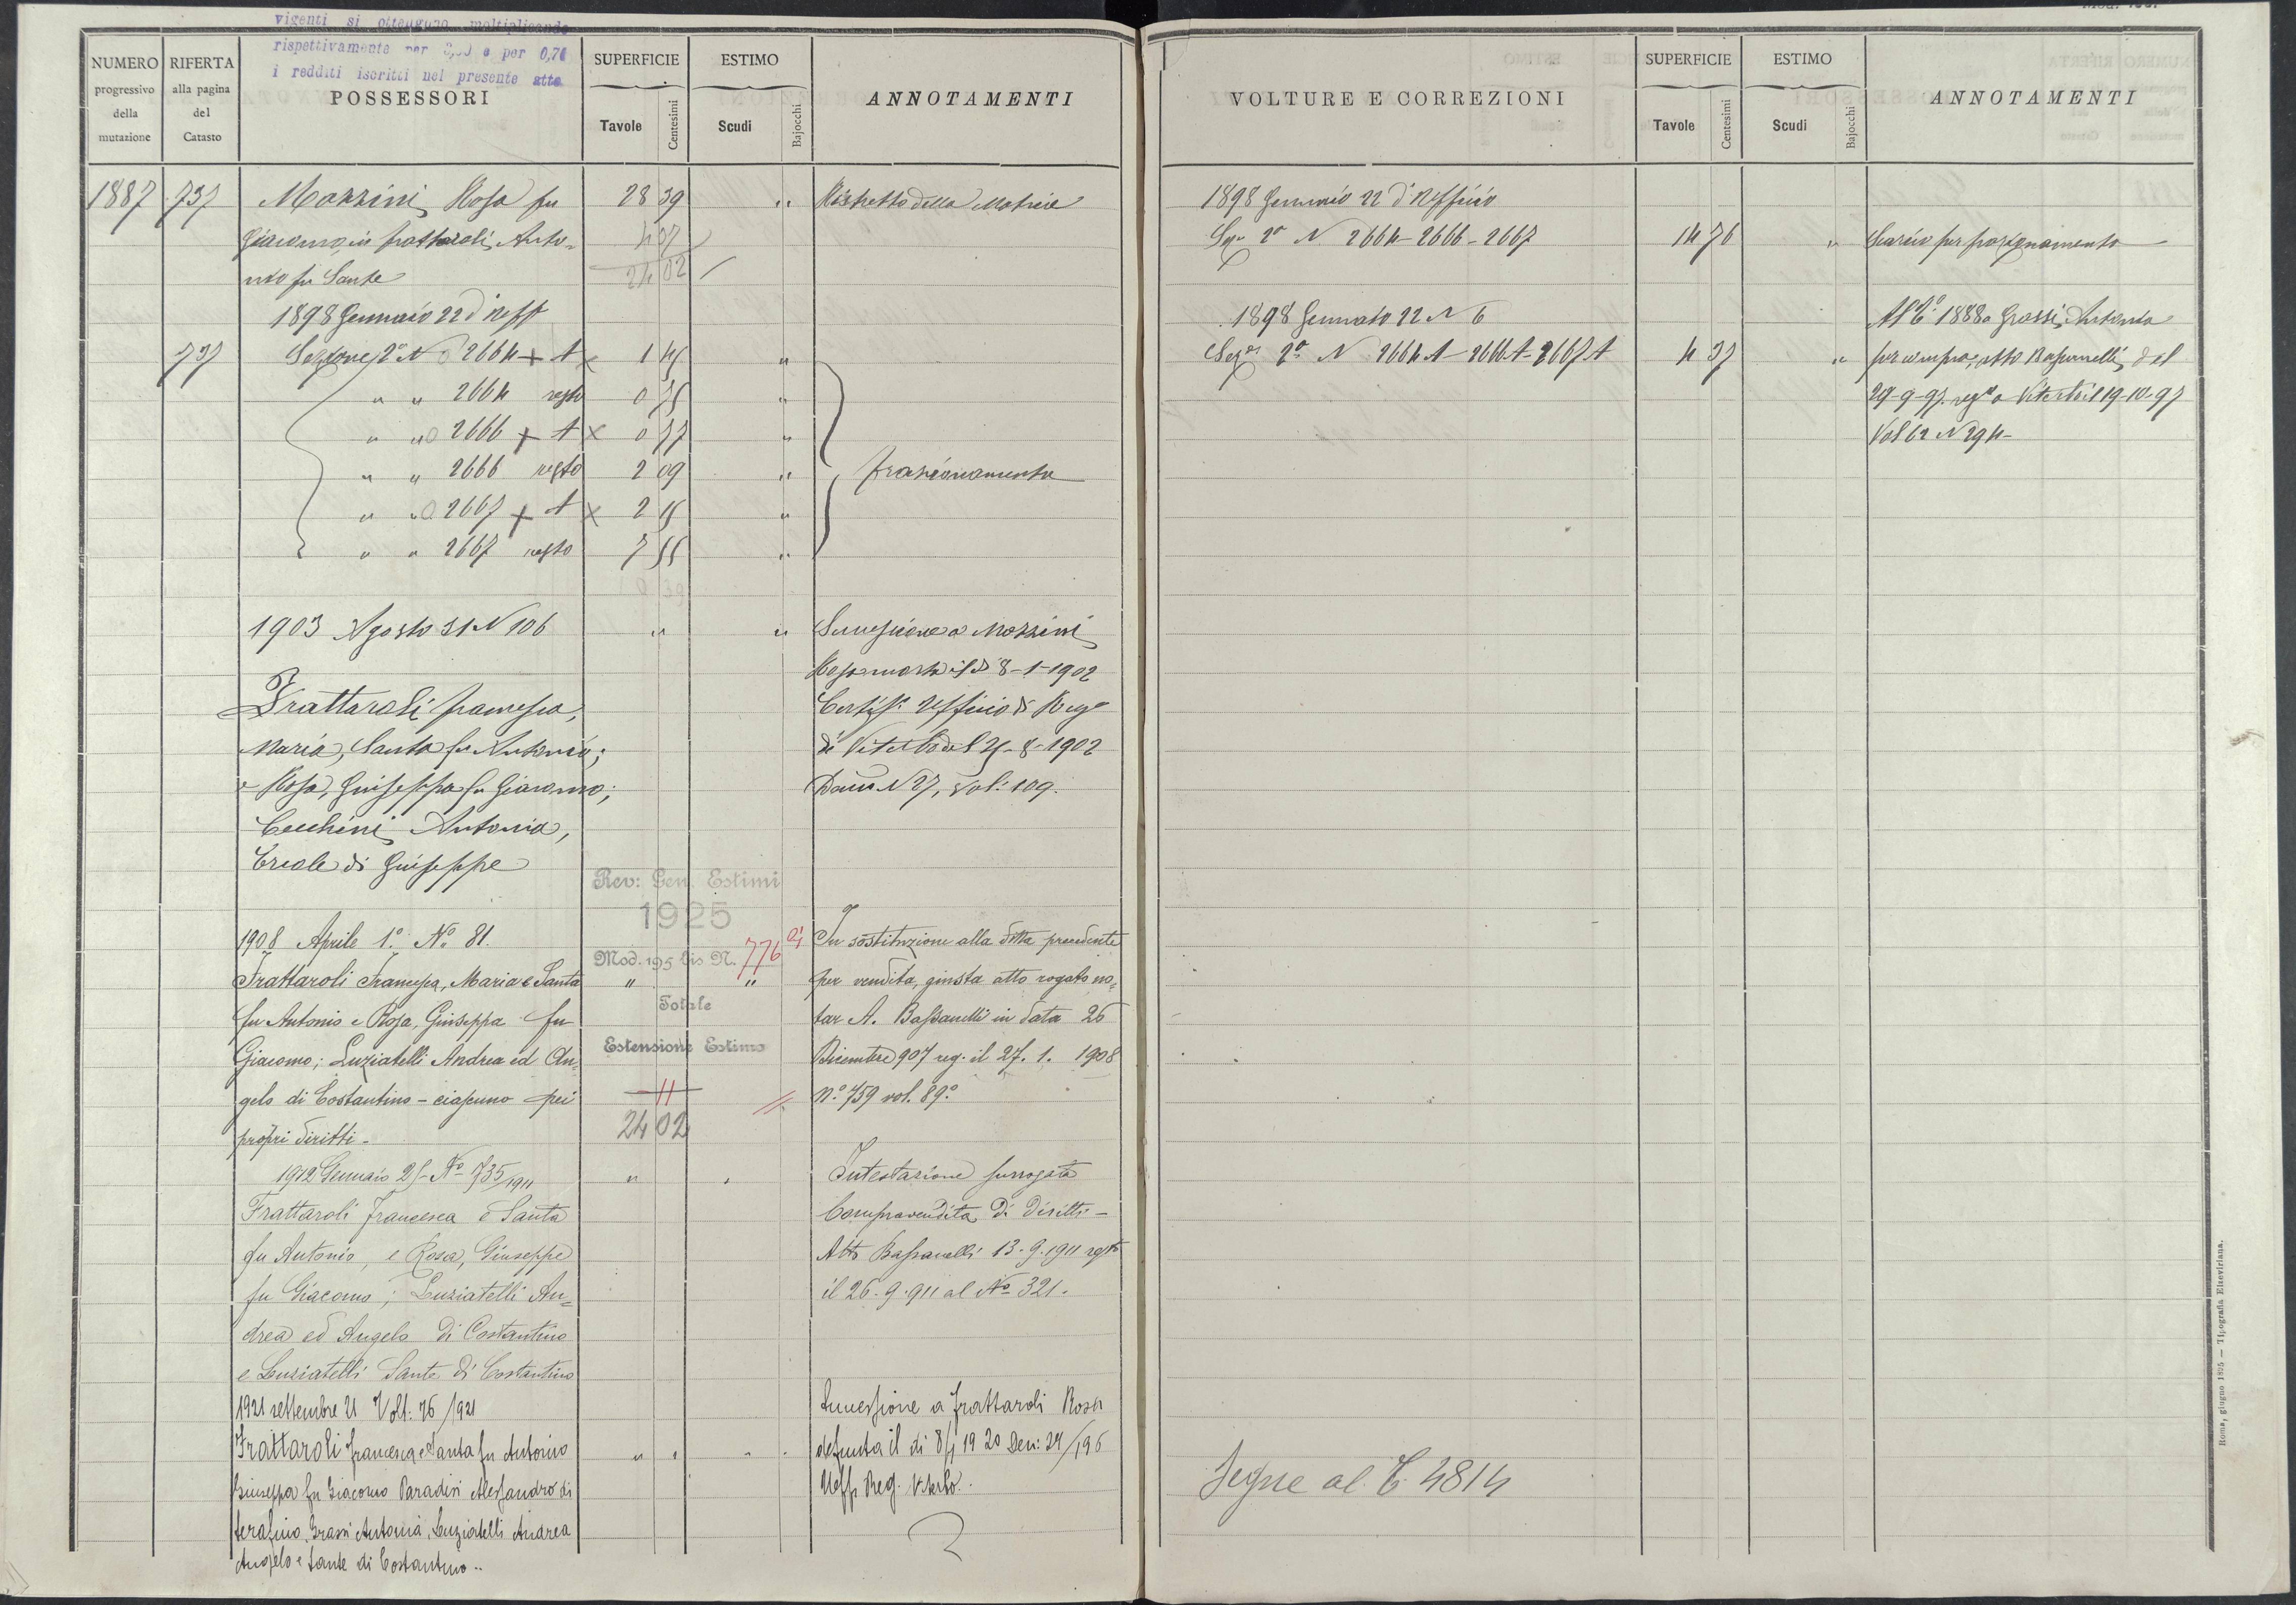 vigenti si ottengono moltiplicando
rispettivamente per e per 0,70
i redditi iscritti nel presente atto
NUMERO
progressivo
della
mutazione
RIFERTA
alla pagina
del
Catasto
POSSESSORI
SUPERFICIE
Tavole
Centesimi
ESTIMO
Scudi
Bajocchi
ANNOTAMENTI
1887 737 Mazzini Rosa fu 28 39 " Ristretto della Matrice
Giacomo, in Frattaroli Anto- 4 37
nio fu Sante 24 02
1898 Gennaio 22 d'Uff
737 Sezione 2a N 2664 + A x 1 45 "
" " 2664 resto 0 75 "
" " 2666 + A x 0 77 "
" " 2666 resto 2 09 " frazionamento
" " 2667 + A x 2 15 "
" " 2667 resto 7 55 "
1903 Agosto 31 N 106 " " Successione a Mazzini
Rosa morta il dì 8-1-1902
Frattaroli Francesca, Certif. Ufficio di Rego
Maria, Santa fu Antonio; di Viterbo del 25-8-1902
e Rosa, Giuseppa fu Giacomo; N 27, Vol: 109.
Cecchini Antonia,
Ercole di Giuseppe
Rev: Gen. Estimi
1925
Mod. 195 bis N. 776
Totale
Estensione Estimo
24 02
1908 Aprile 1º. Nº 81. In sostituzione alla ditta precedente
Frattaroli Francesca, Maria e Santa " " per vendita, giusta atto rogato no-
fu Antonio e Rosa, Giuseppa fu tar A. Bassanelli in data 26
Giacomo; Luziatelli Andrea ed An- Dicembre 907 reg. il 27. 1. 1908
gelo di Costantino - ciascuno pei nº 759 vol. 89º
propri diritti -
1912 Gennaio 25 - Nº 735/1911 " " Intestazione surrogata
Frattaroli Francesca e Santa Compravendita di diritti -
fu Antonio, e Rosa, Giuseppe Atto Bassanelli 13.9.1911 regto
fu Giacomo; Luziatelli An- il 26.9.911 al Nº 321.
drea ed Angelo di Costantino
e Luziatelli Sante di Costantino
1921 settembre 21 Volt: 76/921 Successione a Frattaroli Rosa
Frattaroli Francesca e Santa fu Antonio " " " " defunta il dì 8/1 1920 Den: 24/196
Giuseppa fu Giacomo Paradisi Alessandro di Uff. Reg. Viterbo.
Serafino, Grassi Antonia, Luziatelli Andrea
Angelo e Sante di Costantino..
VOLTURE E CORREZIONI
SUPERFICIE
Tavole
Centesimi
ESTIMO
Scudi
Bajocchi
ANNOTAMENTI
1898 Gennaio 22 d'Ufficio
Sez. 2a N 2664-2666-2667 14 76 " Scarico per frazionamento
1898 Gennaio 22 N 6 Al C.o 1888 a Grassi Antonia
Sez. 2a N 2664A-2666A-2667A 4 37 " per compra, atto Bassanelli del
29-9-97. regto a Viterbo il 19-10-97
Vol 62 N 294-
Segue al C. 4814
Roma, giugno 1895 — Tipografia Elzeviriana.